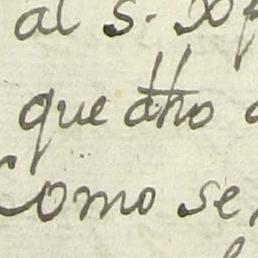 al S.
que dho
Como se